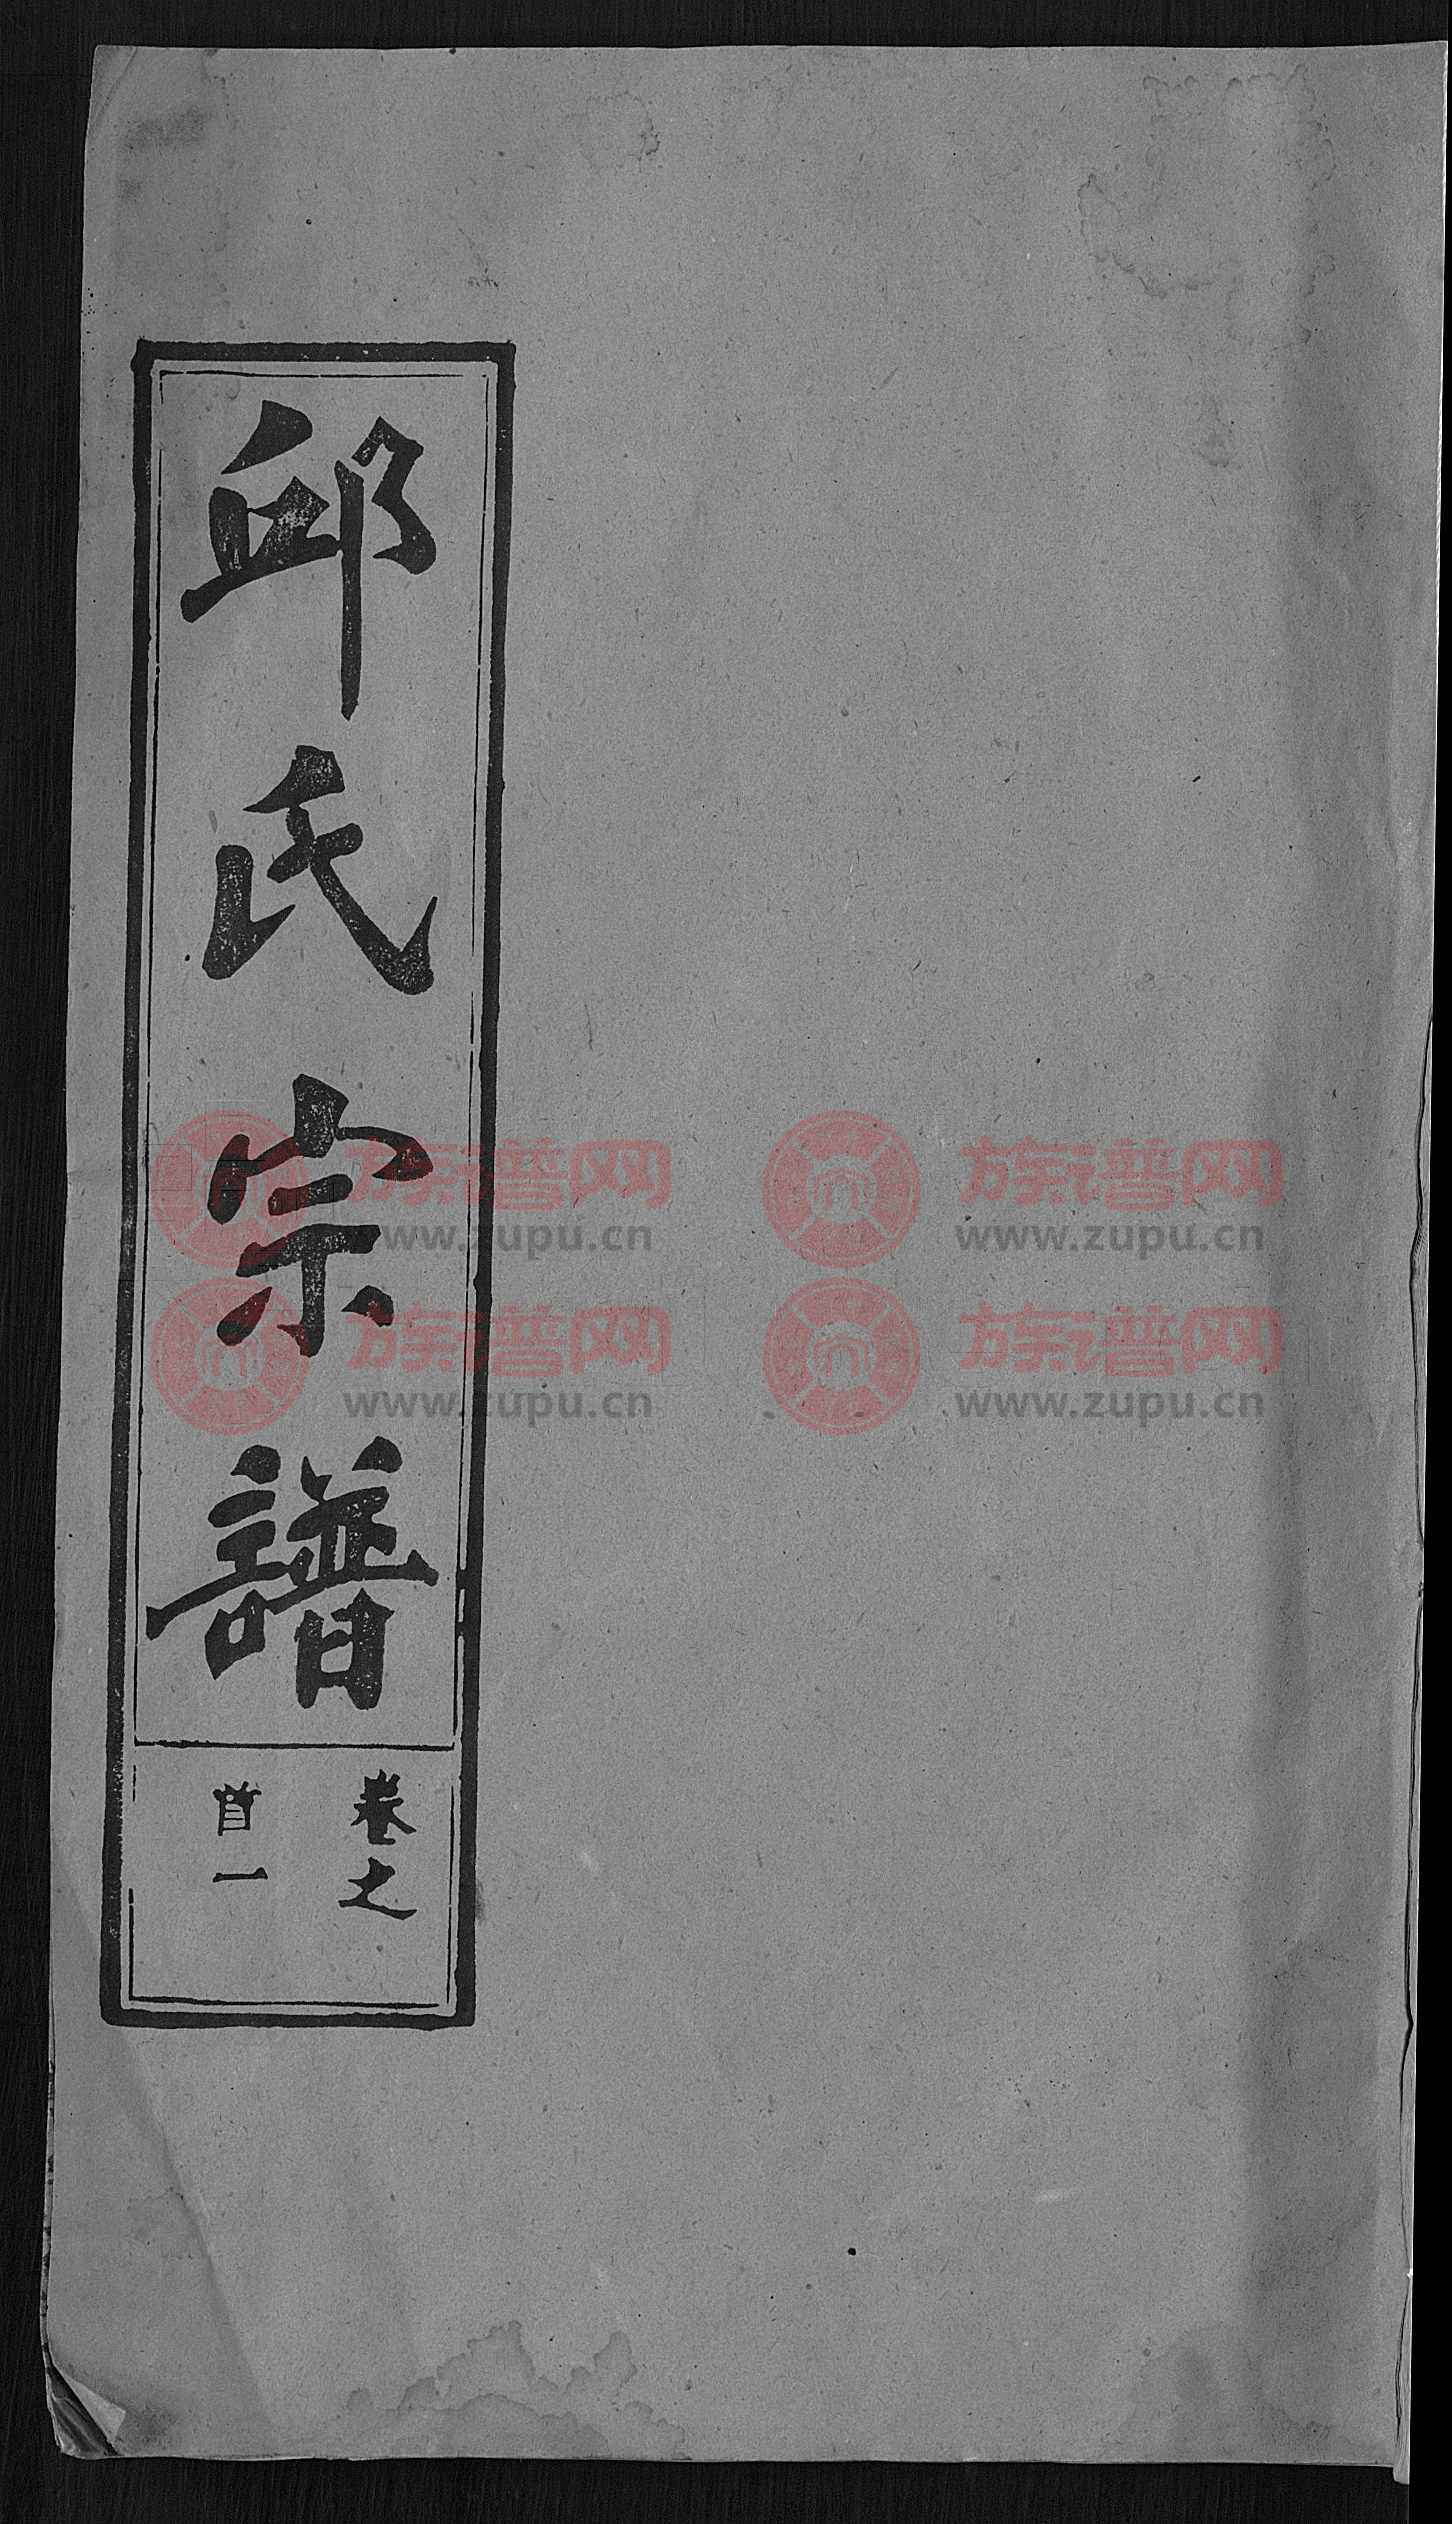 邱氏宗譜
卷之
首一
族谱网 族谱网
www.zupu.cn www.zupu.cn
族谱网 族谱网
www.zupu.cn www.zupu.cn